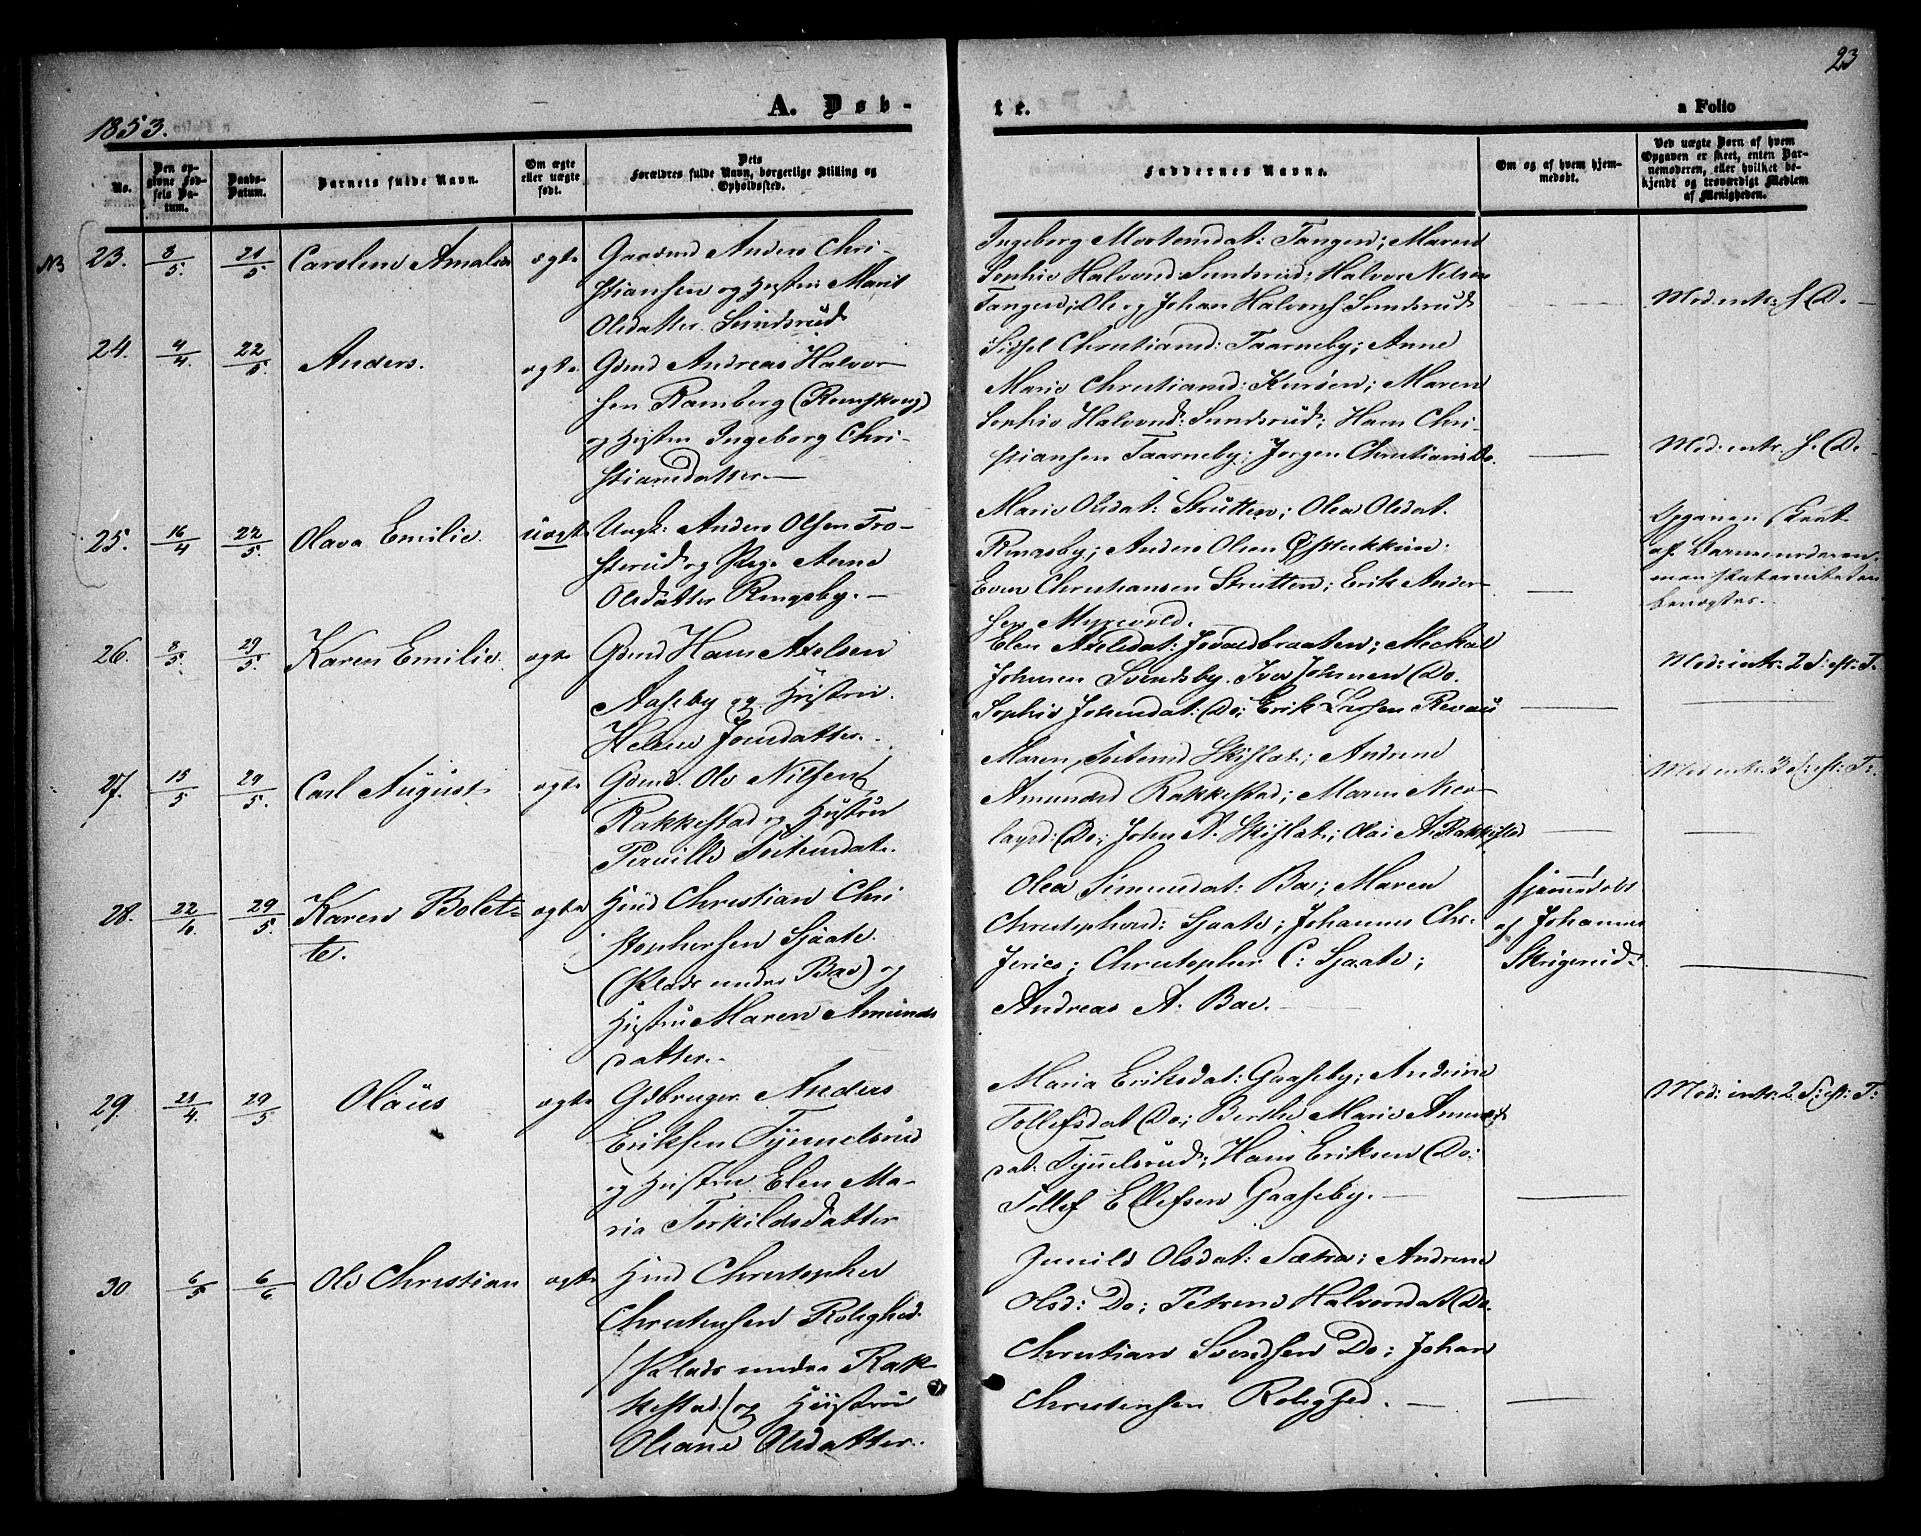 23
1853.
A. Døb-
te.
a Folio
No.
Den op-
givne Fød-
sels Da-
tum.
Daabs-
Datum.
Barnets fulde Navn.
Om ægte
eller uægte
født.
Dets
Forældres fulde Navn, borgerlige Stilling og
Opholdssted.
Faddernes Navne.
Om og af hvem hjem-
medøbt.
Ved uægte Børn af hvem
Opgaven er skeet, enten Bar-
nemoderen, eller hvilket be-
kjendt og troværdigt Medlem
af Menigheden.
NB 23. 8/5 21/5 Caroline Amalie ægte
Gaardmd Anders Chri-
stiansen og Hustru Marit
Olsdatter Sundsrud
Ingeborg Mortensdat: Tangen; Maren
Sophie Halvorsd: Sundsrud; Halvor Nilsen
Tangen; Ole og Johan Halvorsf Sundsrud
Mod: intr: f. D.
24. 4/4 22/5 Anders. ægte
Gdmd Andreas Halvor-
sen Ramberg (Rømskoug)
og Hustru Ingeborg Chri-
stiansdatter.
Sissel Christiansd: Taarneby; Anne
Marie Christiansd: Kursøen; Maren
Sophie Halvorsd: Sundsrud; Hans Chri-
stiansen Taarneby; Jørgen Christians Do.
Mod: intr. f. D.
25. 16/4 22/5 Olava Emilie. uægte
Ungk: Anders Olsen Tro-
sterud og Pige Anne
Olsdatter Ringsby.
Marie Olsdat: Strutten; Olea Olsdat.
Ringsby; Anders Olsen
Even Christiansen Strutten; Erik Ander-
sen Myrvold.
Opgaven skeet
af Barnemoderen,
benægtes.
26. 8/5 29/5 Karen Emilie. ægte
Gdmd Hans Axelsen
Aaseby og Hustru
Helene Jonsdatter.
Elen Axelsdat:
Johnsen Svendsby. Iver Johnsen Do.
Sophie Johnsdat: Do; Erik Larsen
Mod: intr: 2 S: eft: T.
27. 15/5 29/5 Carl August ægte
Gdmd. Ole Nilsen
Rakkestad og Hustru
Pernille
Maren
Amundsd Rakkestad; Maren Nico-
laysd: Do; John A. ; Olai A. Rakkestad
Mod: intr. 2 S: eft: T:
28. 22/6 29/5 Karen Bolet-
te. ægte
Husmd Christian Chri
stophersen Sjaate.
(Plads under Bae) og
Hustru Maren Amunds
datter.
Olea Simensdat: Bae; Maren
Christophersd: Sjaate; Johannes Chr.
Christopher C: Sjaate;
Andreas A. Bae.
Hjemmedøbt
af Johannes
Skrigerud.
29. 21/4 29/5 Olaus ægte
Gdbruger Anders
Eriksen Tynnelsrud
og Hustru Elen Ma-
ria Torkildsdatter
Maria Eriksdat: Gaaseby; Andrine
Tollefsdat Do; Berthe Marie
dat. Tynnelsrud; Hans Eriksen Do:
Tollef Ellefsen Gaaseby.
Mod: intr: 2. S: eft: T:
30 6/5 6/6 Ole Christian ægte
Husmd Christopher
Christensen Rolighed.
(Plads under Rak-
kestad) og Hustru
Oleane Olsdatter.
Gunild Olsdat: Sætra; Andrine
Olsd: Do; Petrine Halvorsdat Do.
Christian Svendsen Do; Johan
Christensen Rolighed.